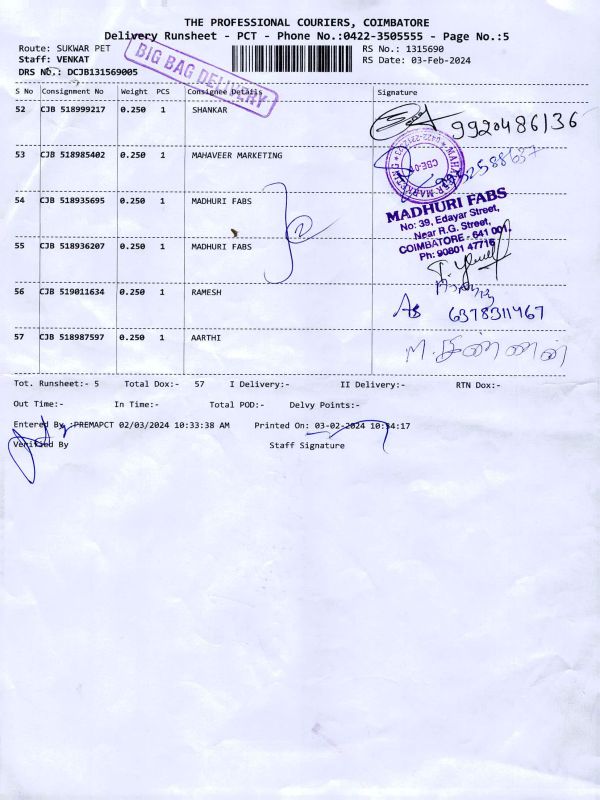 THE PROFESSIONAL COURIERS, COIMBATORE
Delivery Runsheet - PCT - Phone No.:0422-3505555 - Page No.:5
Route: SUKWAR PET
RS No.: 1315690
Staff: VENKAT
RS Date: 03-Feb-2024
DRS No.: DCJB131569005
BIG BAG DELIVERY
S No Consignment No Weight PCS Consignee Details Signature
52 CJB 518999217 0.250 1 SHANKAR
9920486136
53 CJB 518985402 0.250 1 MAHAVEER MARKETING
54 CJB 518935695 0.250 1 MADHURI FABS
2
MADHURI FABS
No: 39, Edayar Street,
Near R.G. Street,
COIMBATORE - 641 001.
Ph: 90801 47716
55 CJB 518936207 0.250 1 MADHURI FABS
56 CJB 519011634 0.250 1 RAMESH
6378311467
57 CJB 518987597 0.250 1 AARTHI
Tot. Runsheet:- 5 Total Dox:- 57 I Delivery:- II Delivery:- RTN Dox:-
Out Time:- In Time:- Total POD:- Delvy Points:-
Entered By :PREMAPCT 02/03/2024 10:33:38 AM Printed On: 03-02-2024 10:34:17
Verified By Staff Signature